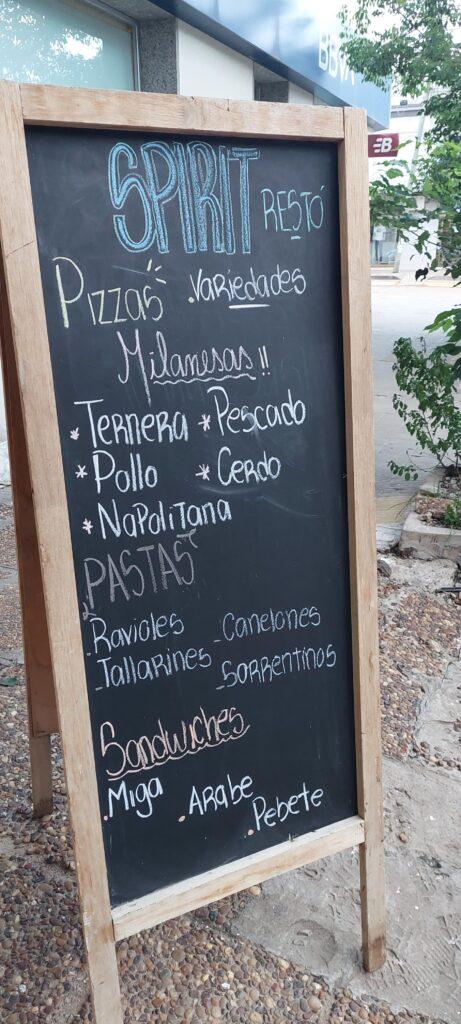 BBVA
B
SPIRIT RESTÓ
Pizzas .Variedades
Milanesas !!
* Ternera * Pescado
* Pollo * Cerdo
* Napolitana
PASTAS
- Ravioles - Canelones
- Tallarines - Sorrentinos
Sandwiches
. Miga . Arabe . Pebete